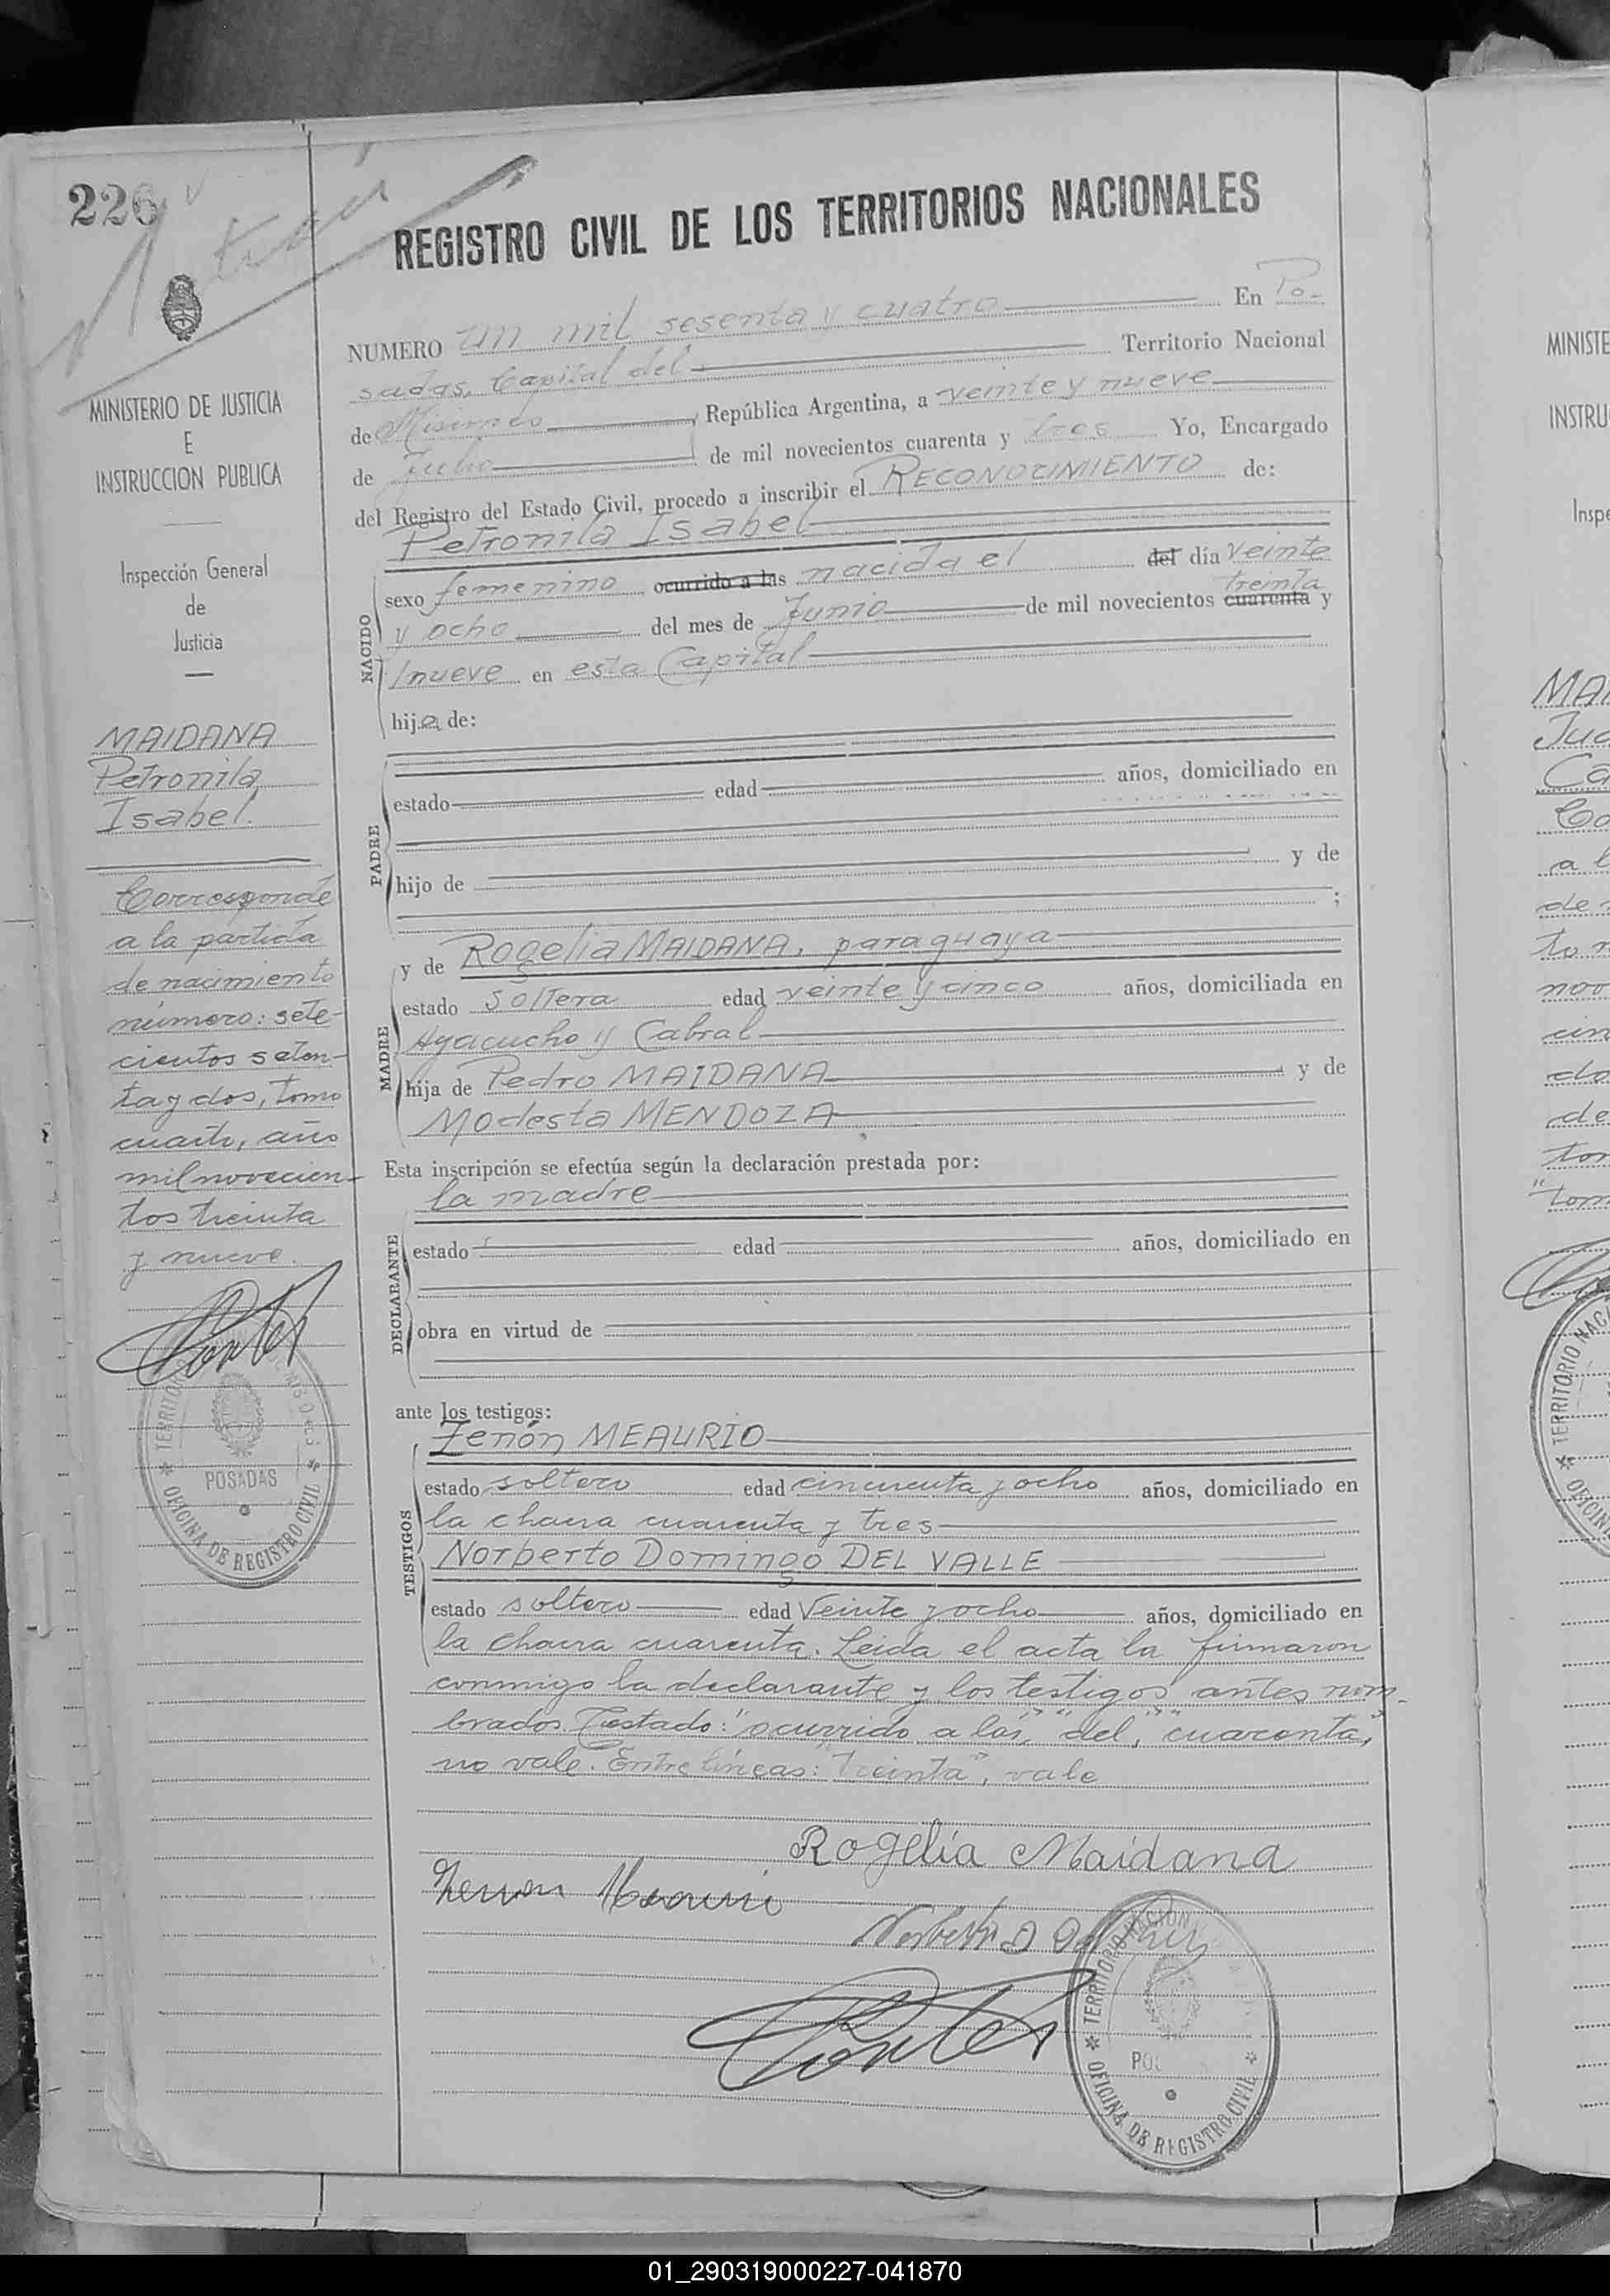 226
REGISTRO CIVIL DE LOS TERRITORIOS NACIONALES
MINISTERIO DE JUSTICIA
E
INSTRUCCION PUBLICA
Inspección General
de
Justicia
MAIDANA
Petronila
Isabel.
Corresponde
a la partida
de nacimiento
número: sete-
cientos seten-
ta y dos, tomo
cuarto, año
mil novecien-
tos treinta
y nueve.
TERRITORIO
POSADAS
OFICINA DE REGISTRO CIVIL
NUMERO un mil sesenta y cuatro En Po-
sadas, Capital del Territorio Nacional
de Misiones, República Argentina, a veinte y nueve
de Julio de mil novecientos cuarenta y tres Yo, Encargado
del Registro del Estado Civil, procedo a inscribir el RECONOCIMIENTO de:
Petronila Isabel
NACIDO
sexo femenino ocurrido a las nacida el del día veinte
treinta
y ocho del mes de Junio de mil novecientos cuarenta y
nueve en esta Capital
hija de:
PADRE
estado edad años, domiciliado en
hijo de y de
;
MADRE
y de Rogelia MAIDANA, paraguaya
estado soltera edad veinte y cinco años, domiciliada en
Ayacucho y Cabral
hija de Pedro MAIDANA y de
Modesta MENDOZA
Esta inscripción se efectúa según la declaración prestada por:
la madre
DECLARANTE
estado edad años, domiciliado en
obra en virtud de
ante los testigos:
TESTIGOS
Zenón MEAURIO
estado soltero edad cincuenta y ocho años, domiciliado en
la chacra cuarenta y tres
Norberto Domingo DEL VALLE
estado soltero edad Veinte y ocho años, domiciliado en
la chacra cuarenta. Leida el acta la firmaron
conmigo la declarante y los testigos antes nom-
brados. Testado: "ocurrido a las", "del", "cuarenta",
no vale. Entre líneas: "treinta", vale
Rogelia Maidana
TERRITORIO NACION
OFICINA DE REGISTRO CIVIL
MINISTE
INSTRU
Inspe
MAI
TERRITORIO NACI
OFICIN
01_290319000227-041870